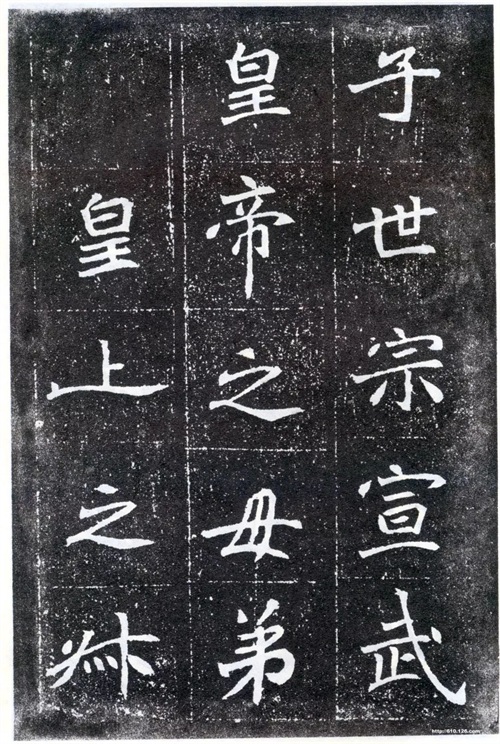 子世宗宣武
皇帝之毋弟
皇上之𠦑
http://610.126.com